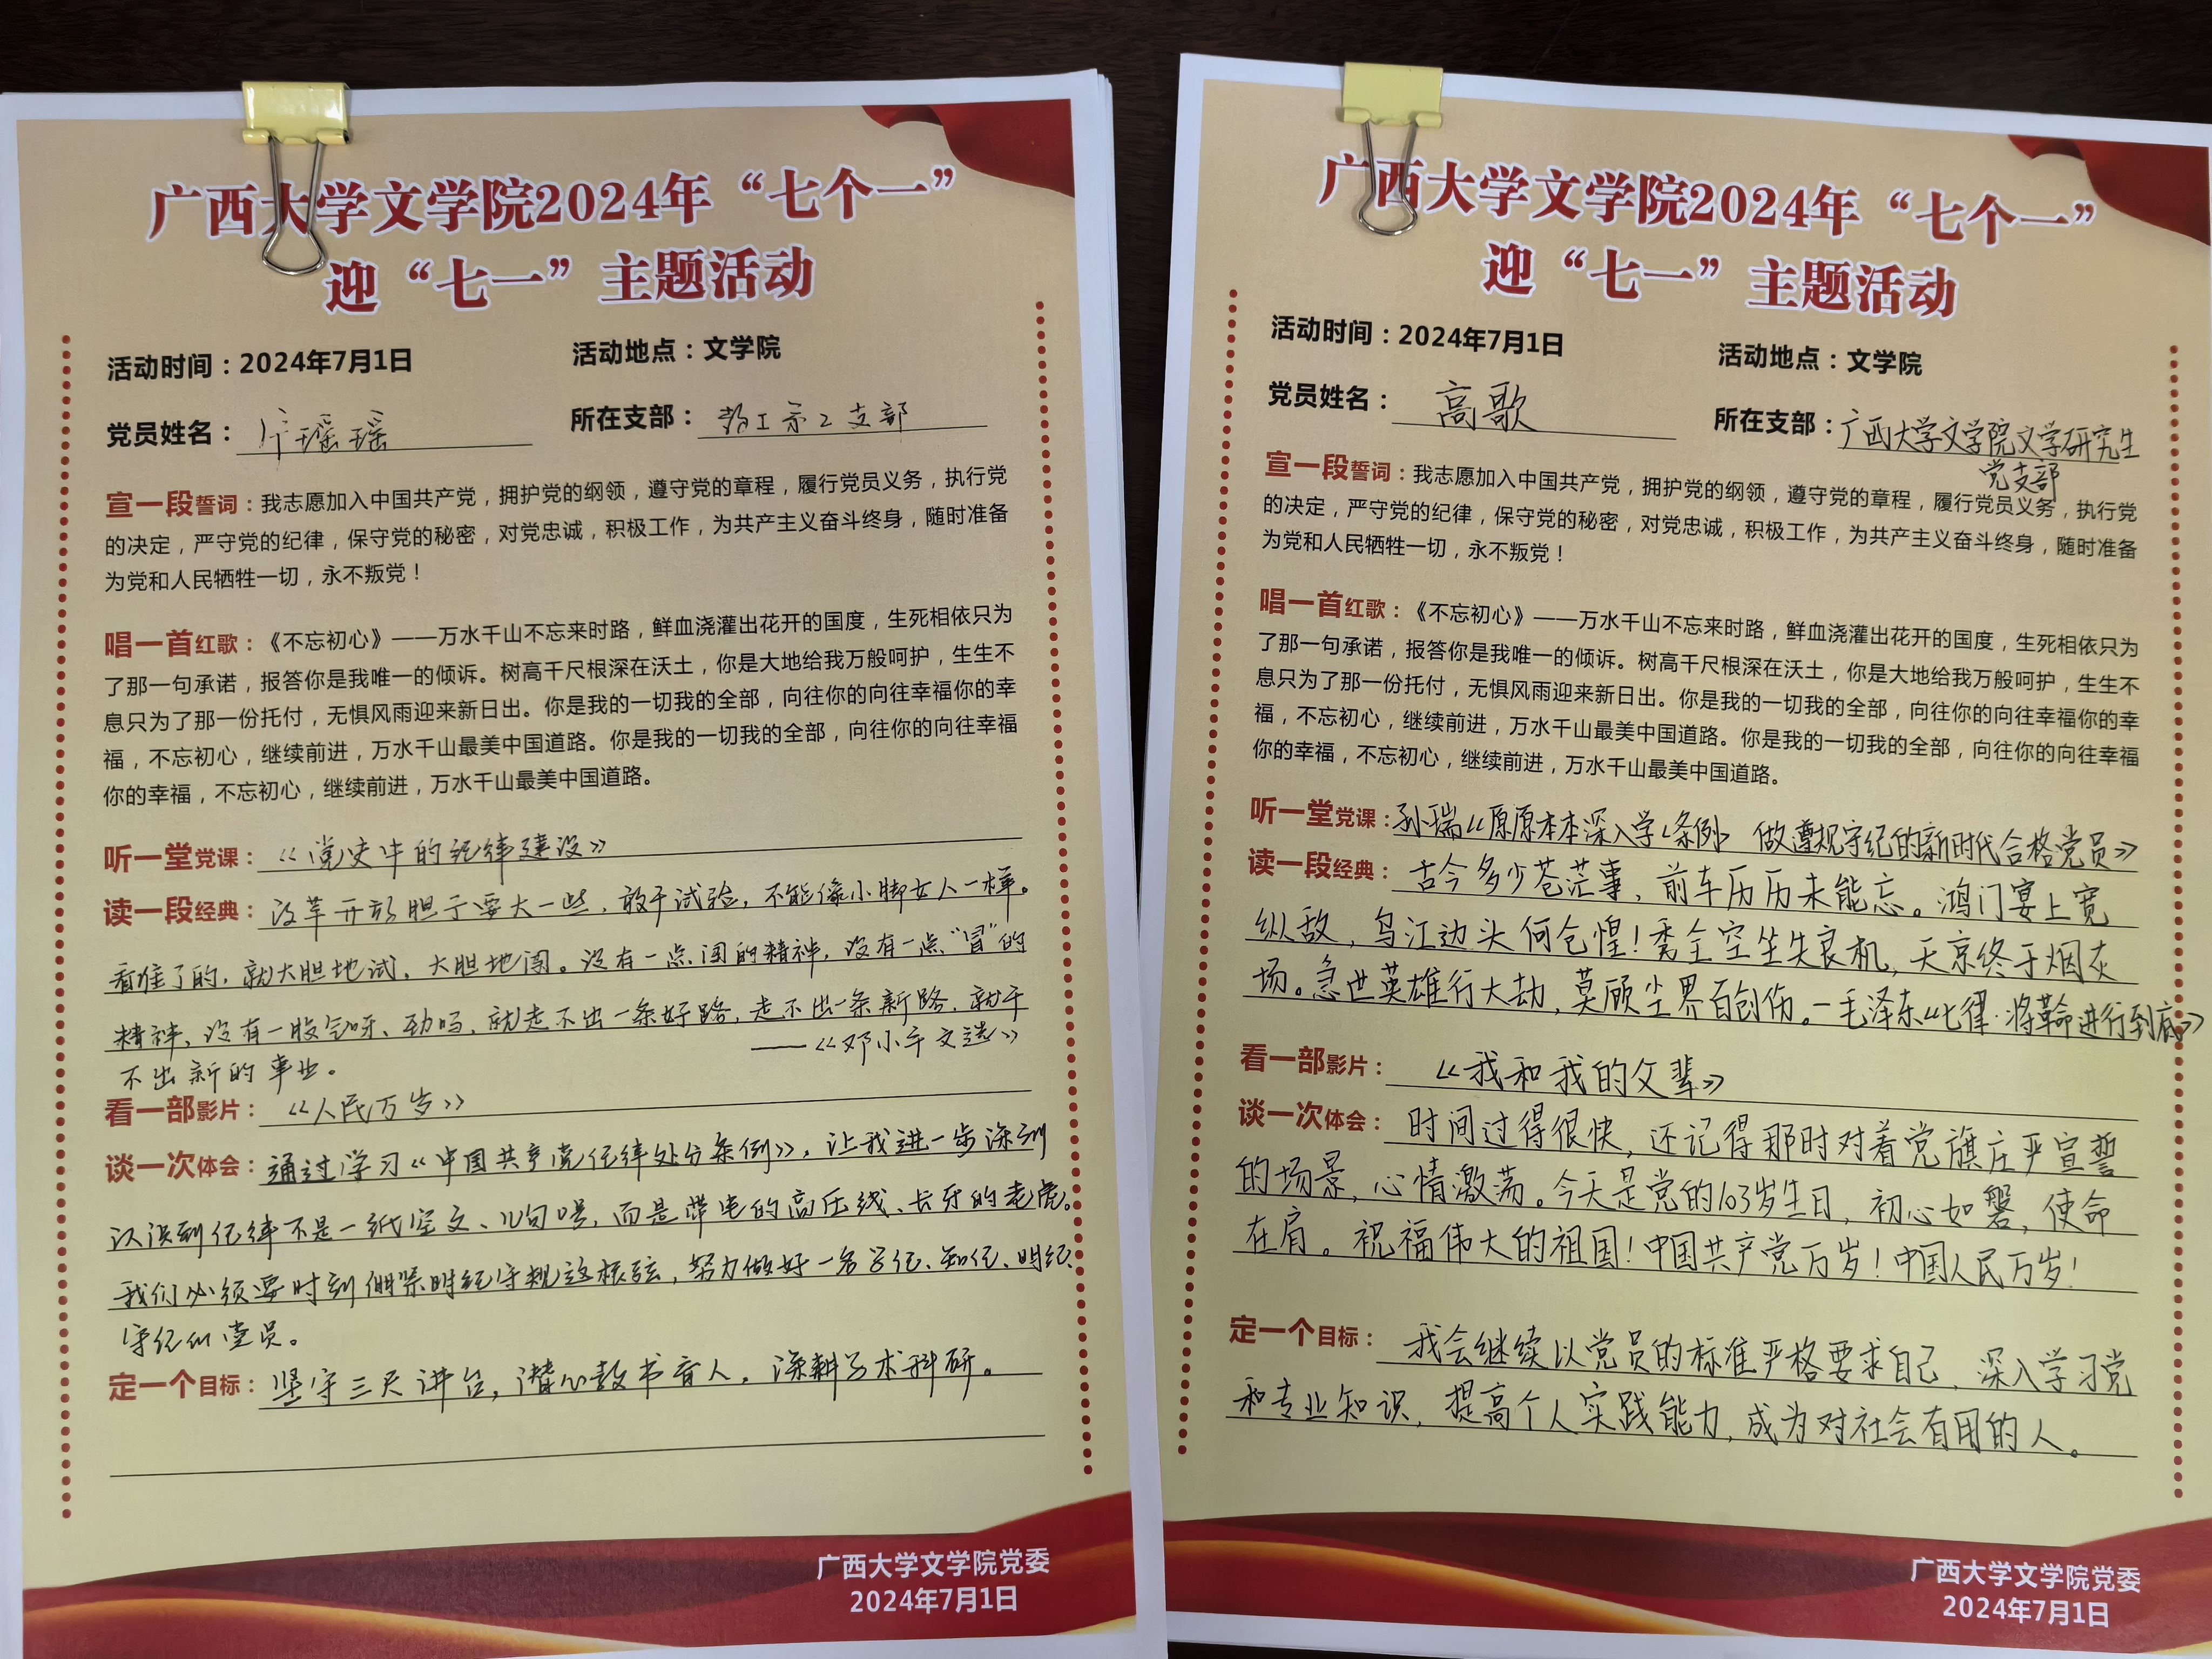 广西大学文学院2024年“七个一”
迎“七一”主题活动
活动时间：2024年7月1日
活动地点：文学院
党员姓名：瑶瑶
所在支部：教工第二支部
宣一段誓词：我志愿加入中国共产党，拥护党的纲领，遵守党的章程，履行党员义务，执行党
的决定，严守党的纪律，保守党的秘密，对党忠诚，积极工作，为共产主义奋斗终身，随时准备
为党和人民牺牲一切，永不叛党！
唱一首红歌：《不忘初心》——万水千山不忘来时路，鲜血浇灌出花开的国度，生死相依只为
了那一句承诺，报答你是我唯一的倾诉。树高千尺根深在沃土，你是大地给我万般呵护，生生不
息只为了那一份托付，无惧风雨迎来新日出。你是我的一切我的全部，向往你的向往幸福你的幸
福，不忘初心，继续前进，万水千山最美中国道路。你是我的一切我的全部，向往你的向往幸福
你的幸福，不忘初心，继续前进，万水千山最美中国道路。
听一堂党课：《党史中的纪律建设》
读一段经典：改革开放胆子要大一些，敢于试验，不能像小脚女人一样。
看准了的，就大胆地试，大胆地闯。没有一点闯的精神，没有一点“冒”的
精神，没有一股气呀、劲呀，就走不出一条好路，走不出一条新路，就干
不出新的事业。
——《邓小平文选》
看一部影片：《人民万岁》
谈一次体会：通过学习《中国共产党纪律处分条例》，让我进一步深刻
认识到纪律不是一纸空文、几句空，而是带电的高压线、长牙的老虎。
我们必须要时刻绷紧明纪守规这根弦，努力做好一名学纪、知纪、明纪、
守纪的党员。
定一个目标：坚守三尺讲台，潜心教书育人，深耕学术科研。
广西大学文学院党委
2024年7月1日
广西大学文学院2024年“七个一”
迎“七一”主题活动
活动时间：2024年7月1日
活动地点：文学院
党员姓名：高歌
所在支部：广西大学文学院文学研究生
党支部
宣一段誓词：我志愿加入中国共产党，拥护党的纲领，遵守党的章程，履行党员义务，执行党
的决定，严守党的纪律，保守党的秘密，对党忠诚，积极工作，为共产主义奋斗终身，随时准备
为党和人民牺牲一切，永不叛党！
唱一首红歌：《不忘初心》——万水千山不忘来时路，鲜血浇灌出花开的国度，生死相依只为
了那一句承诺，报答你是我唯一的倾诉。树高千尺根深在沃土，你是大地给我万般呵护，生生不
息只为了那一份托付，无惧风雨迎来新日出。你是我的一切我的全部，向往你的向往幸福你的幸
福，不忘初心，继续前进，万水千山最美中国道路。你是我的一切我的全部，向往你的向往幸福
你的幸福，不忘初心，继续前进，万水千山最美中国道路。
听一堂党课：孙瑞《原原本本深入学〈条例〉 做遵规守纪的新时代合格党员》
读一段经典：古今多少苍茫事，前车历历未能忘。鸿门宴上宽
纵敌，乌江边头何仓惶！秀全空坐失良机，天京终于烟灰
场。急世英雄行大劫，莫顾尘界百创伤。—毛泽东《七律·将革命进行到底》
看一部影片：《我和我的父辈》
谈一次体会：时间过得很快，还记得那时对着党旗庄严宣誓
的场景，心情激荡。今天是党的103岁生日，初心如磐，使命
在肩。祝福伟大的祖国！中国共产党万岁！中国人民万岁！
定一个目标：我会继续以党员的标准严格要求自己，深入学习党
和专业知识，提高个人实践能力，成为对社会有用的人。
广西大学文学院党委
2024年7月1日